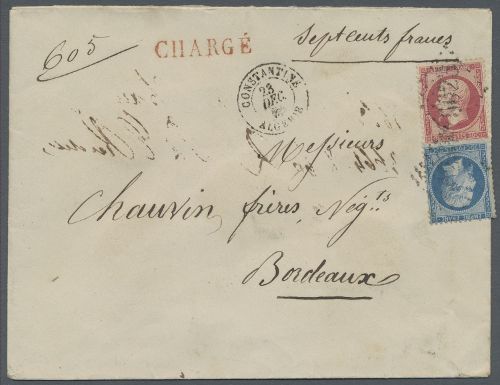 605
CHARGÉ
Sept cents francs
CONSTANTINE
23
DEC.
ALGERIE
Messieurs
Chauvin frères, Negts
Bordeaux